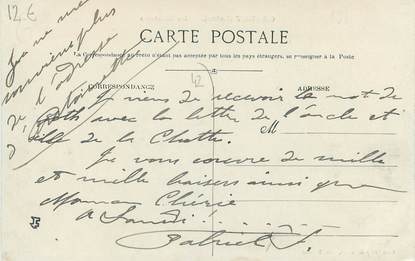 12 €
Je ne me
souviens plus
de l'adresse
d'Antoinette
CARTE POSTALE
La Correspondance au recto n'étant pas acceptée par tous les pays étrangers, se renseigner à la Poste
CORRESPONDANCE
ADRESSE
42
Je viens de recevoir le mot de
avec la lettre de l'oncle et
M
de la
Je vous couvre de mille
et mille baisers ainsi que
Maman Chérie
A Samedi!
Gabriel